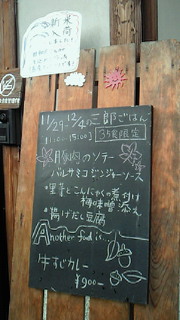 新米
入荷
しました!
11/29-12/4の三郎ごはん
11:00-15:00 35食限定
豚肉のソテー
バルサミコジンジャーソース
・里芋とこんにゃくの煮付け
柚味噌添え
・揚げだし豆腐
Another food is...
牛すじカレー
¥900-